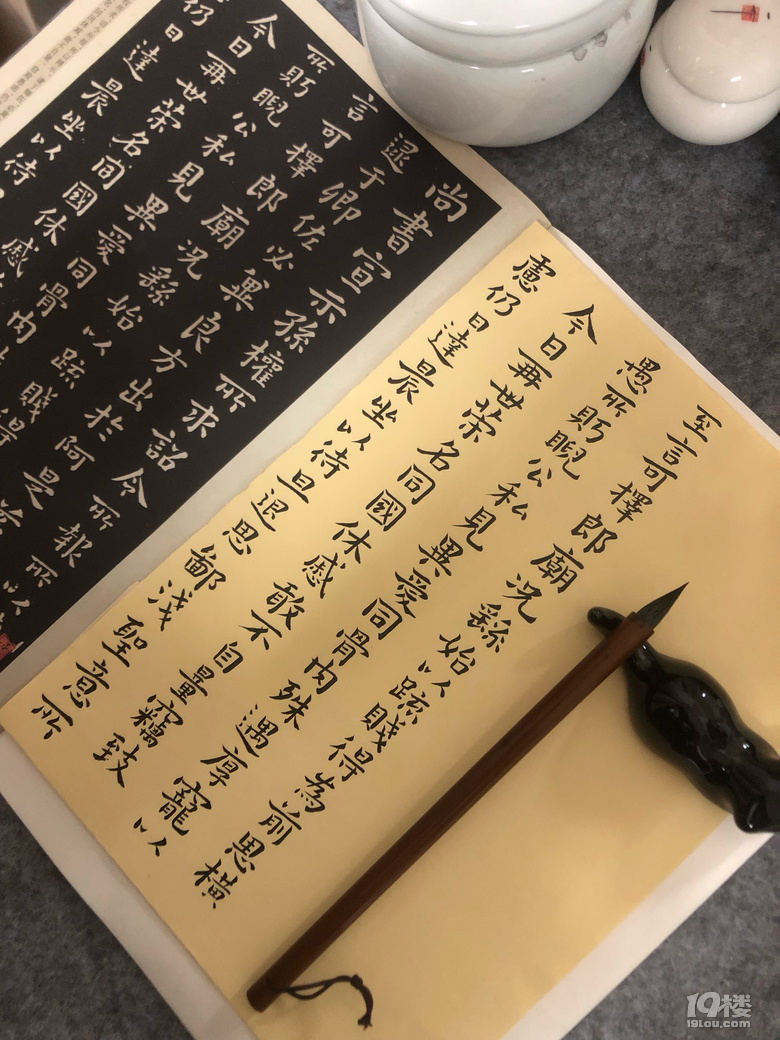 尚書宣示孫權所求詔令所報所以
逮于卿佐必冀良方出於阿是芻
言可擇郎廟況繇始以踈賤得
所眄睨公私見異愛同骨肉
今日再世榮名同國休慼
仍日達晨坐以待
至言可擇郎廟況繇始以踈賤得為前恩橫
愚所眄睨公私見異愛同骨肉殊遇厚寵以
今日再世榮名同國休慼敢不自量竊致
慮仍日達晨坐以待旦退思鄙淺聖意所
19楼
19lou.com